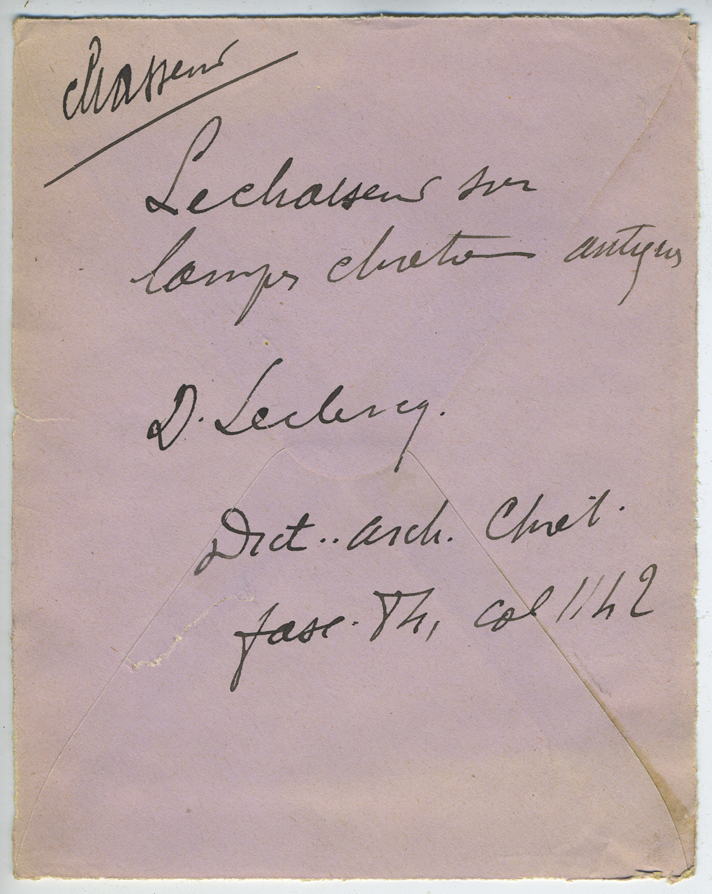 chasseur
Le chasseur sur
lampes chrétiennes antiques
D. Leclercq.
Dict.. arch. Chrét.
fasc. 84, col 1142